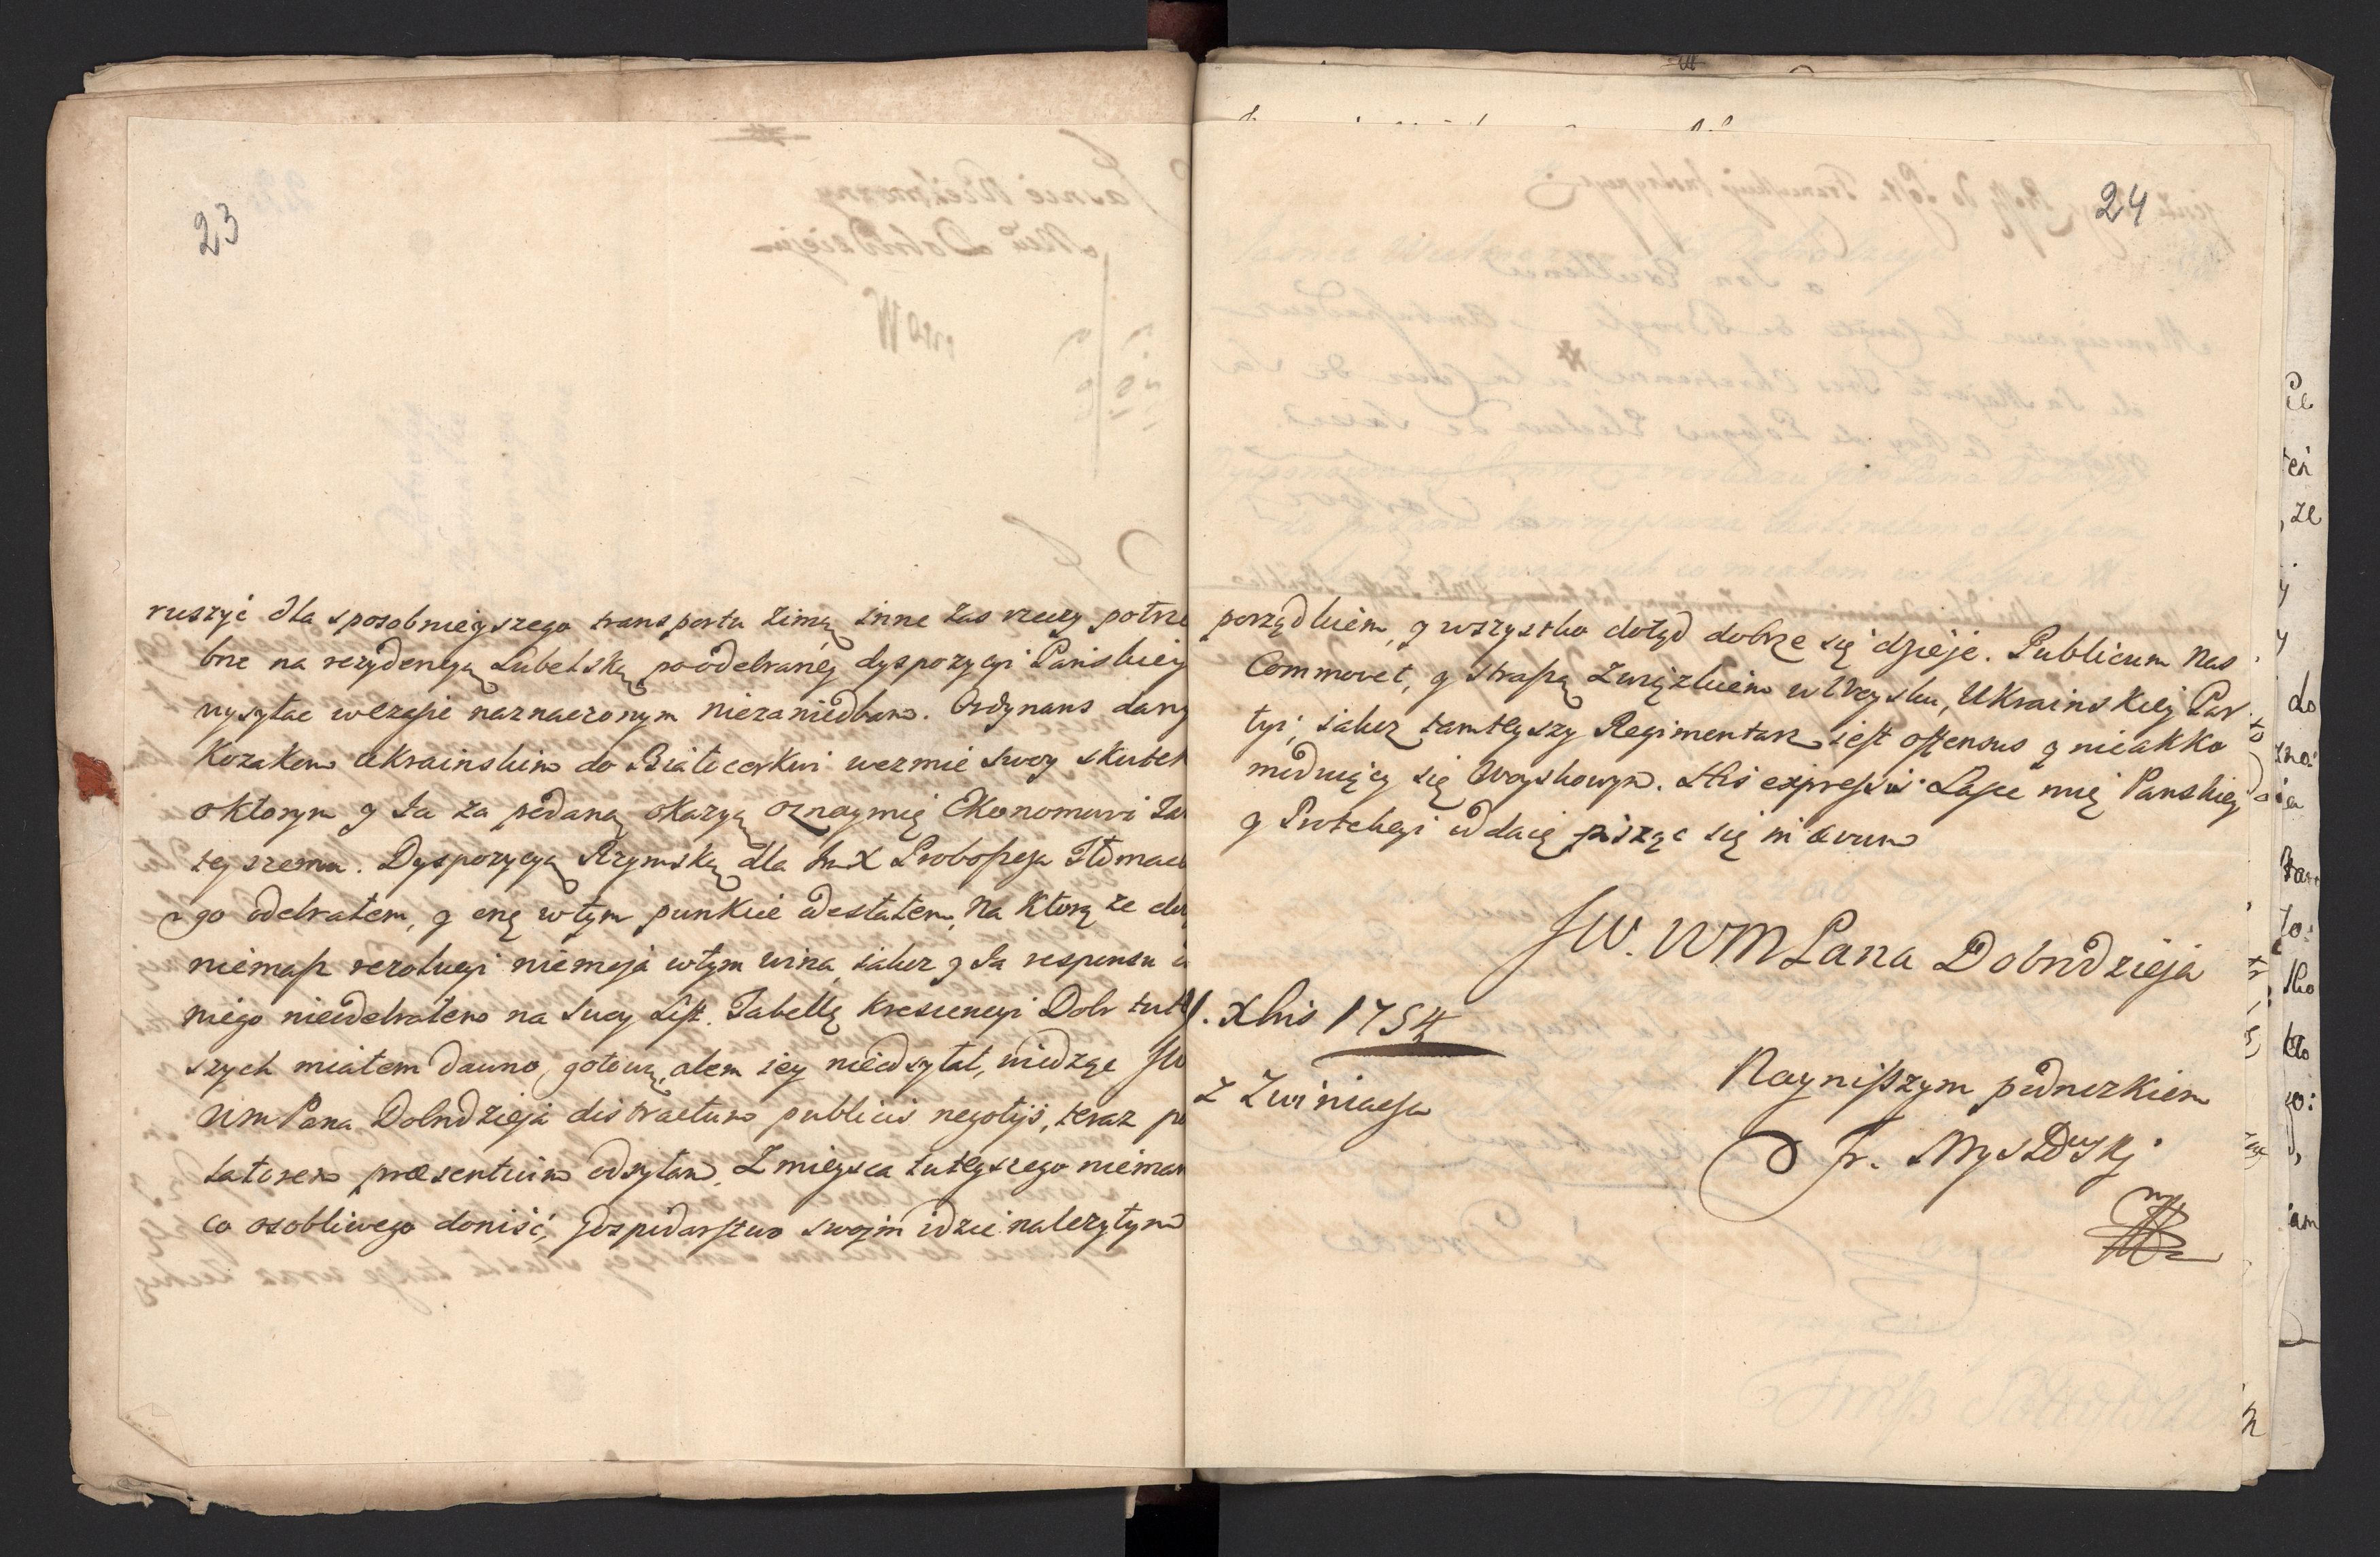 23
ruszyć dla sposobnieyszego transportu zimą inne zas rzeczy potrze
bne na rezydencyą Lubelską po odebraney dyspozycyi Panskiey
wysyłac w czasie naznaczonym niezaniedbam. Ordynans dany
Kozakom Ukrainskim do Białocerkwi wezmie swoy skutek
o ktorym y Ja za podaną okazyą oznaymię Ekonomowi Ta
teyszemu. Dyspozycyą Rzymską dla Im X Proboszcza Tłomac
go odebrałem, y onę w tym punkcie odesłałem, Na Ktorą że do
niemasz rezolucyi niemoja w tym wina, ialuz y Ja responsu
niego nieodebrałem na swoy List. Tabellę krescencyi Dobr tut
szych miałem dawno gotową, alem iey nieodsyłał, widząc JW
WmPana Dobrodzieja distractum publicis negotijs, teraz po
latorem praesentium odsyłam. Z mieysca tuteyszego niemam
co osobliwego donisć, Gospodarstwo swoim idzie należytym
24
porządkiem, y wszystko dotąd dobrze się dzieje. Publicum Nas
Commovet, y straszą Związkiem w Woysku, Ukrainskiey Par
tyi, iakuz tamteyszy Regimentarz iest offensus y nieakko
moduiący się Woyskowym. His expressis Łasce mię Panskiey
y Protekcyi oddaię pisząc się in aevum
JW. WM Pana Dobrodzieja
1. Xbris 1754
z Zwiniacza
Nayniższym podnozkiem
Fr. Myszkowskj
mp